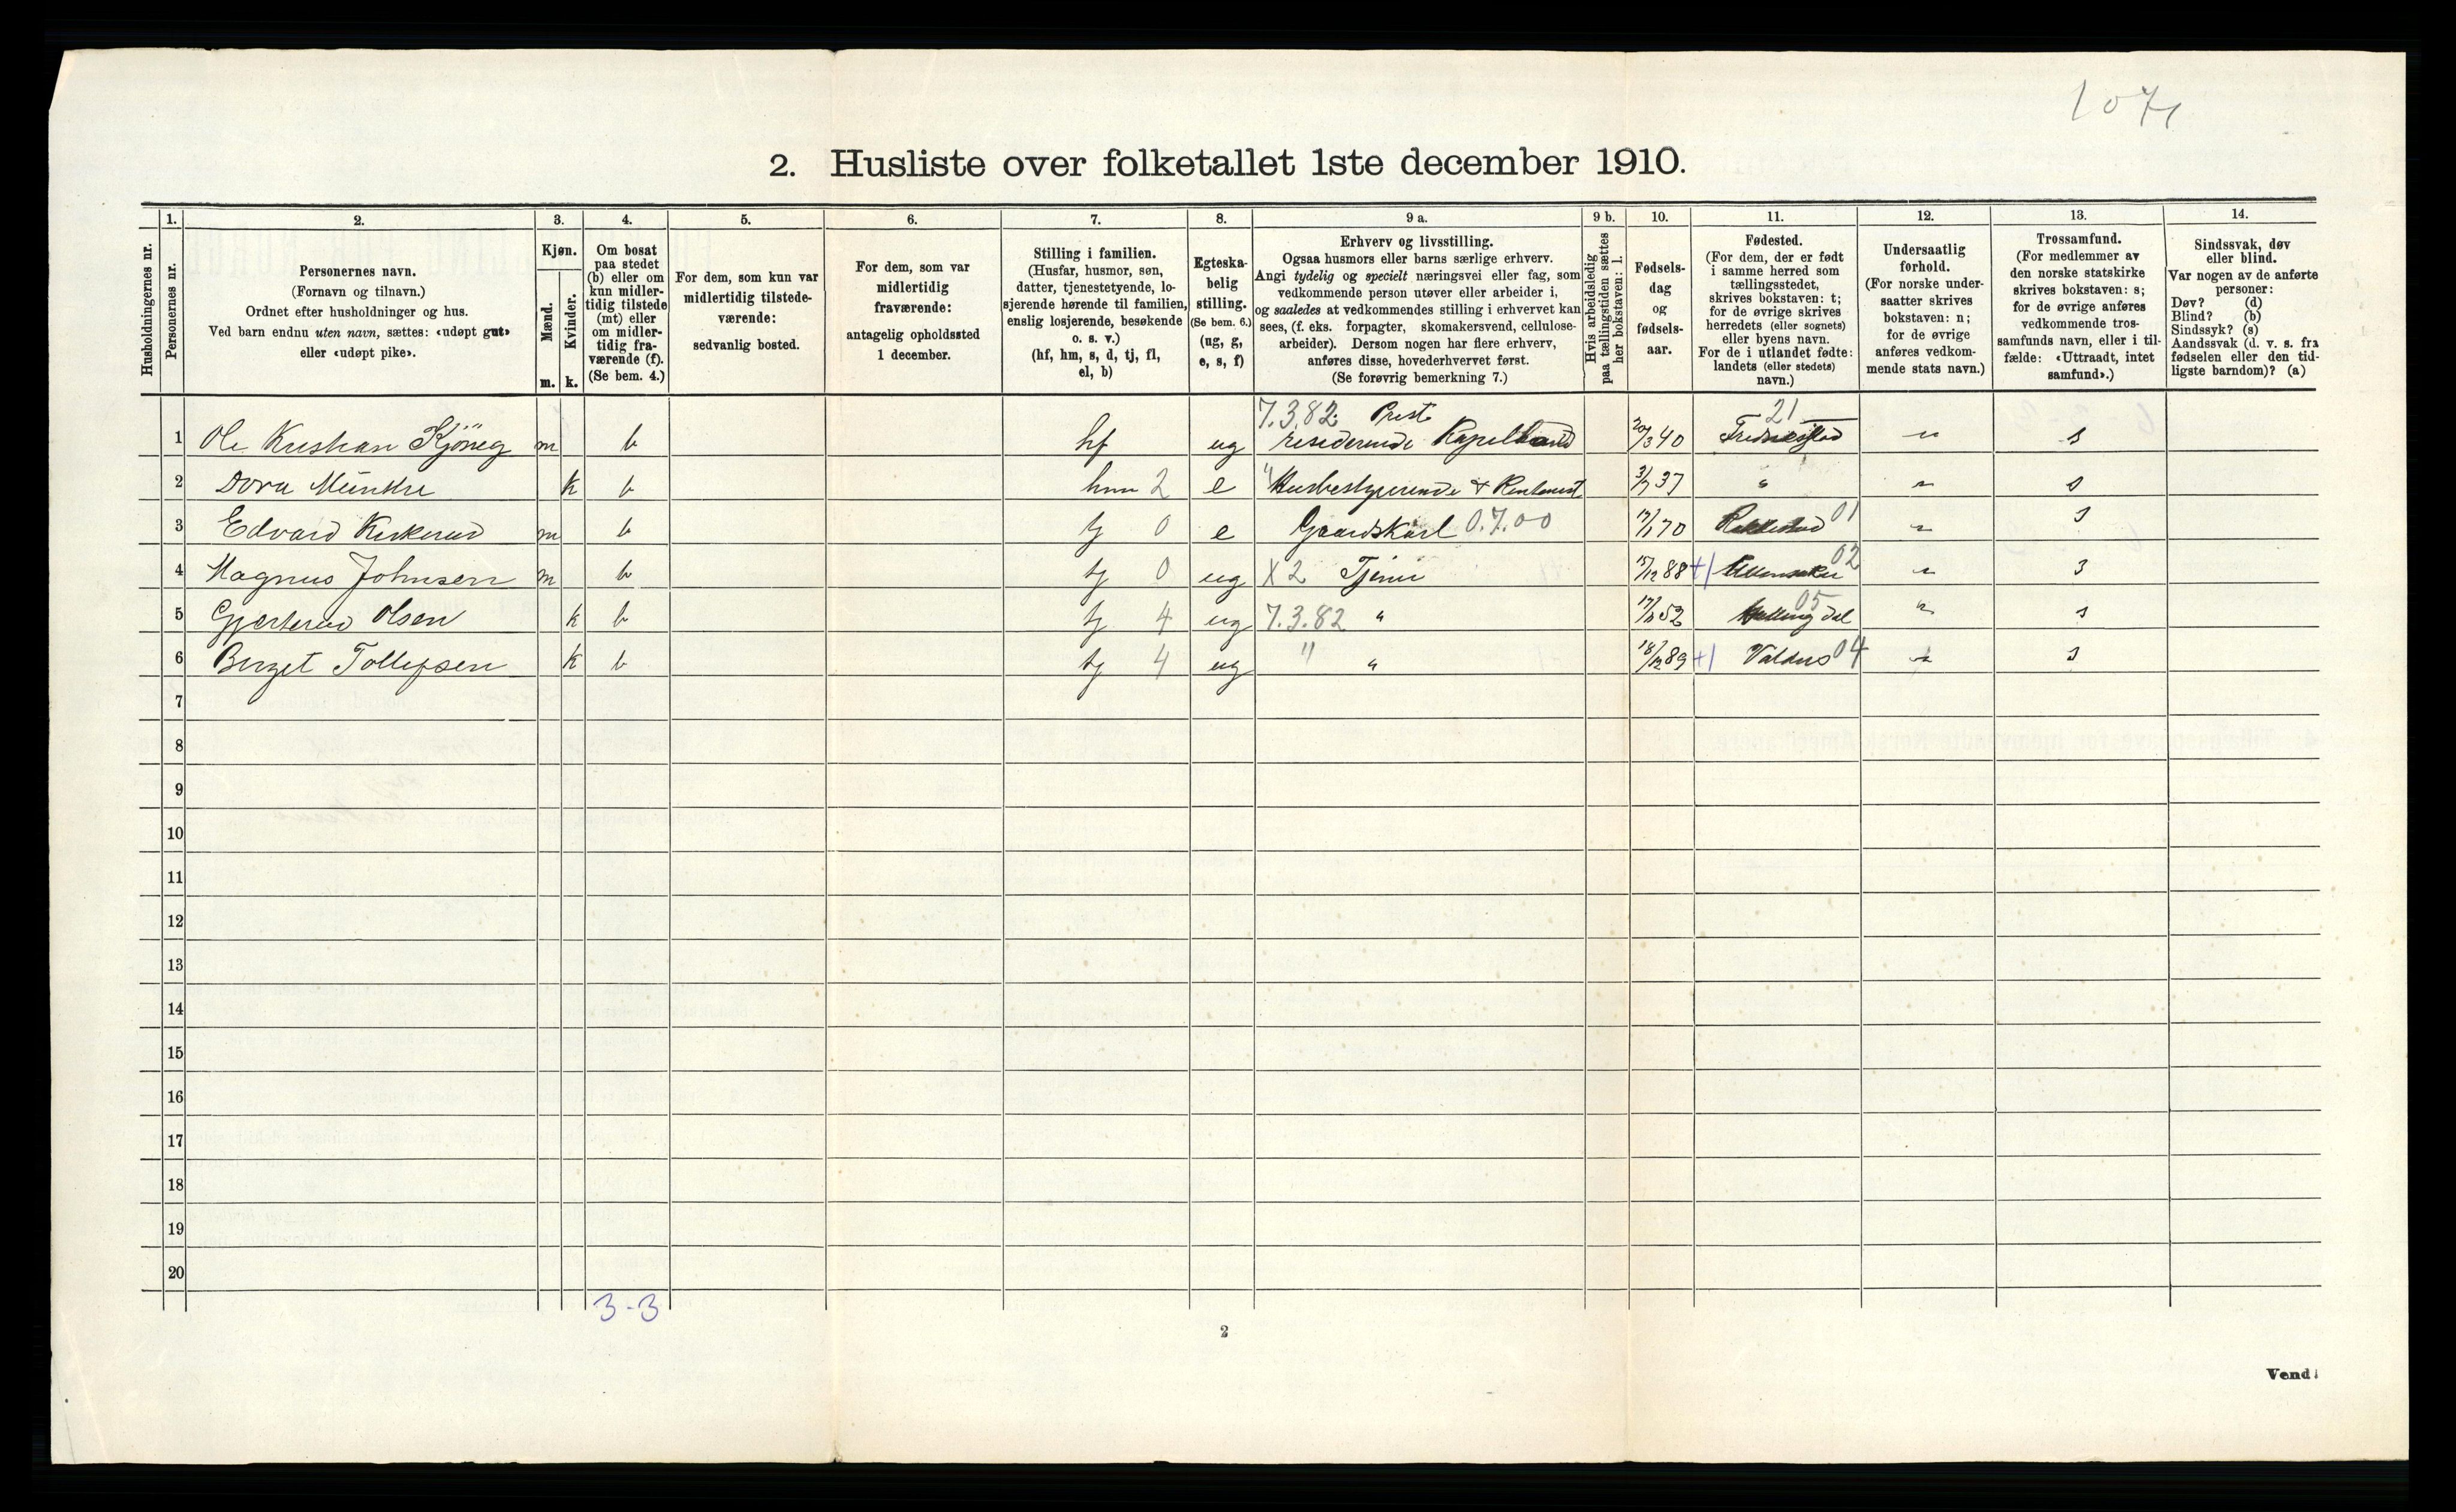 1071
2. Husliste over folketallet 1ste december 1910.
1. 2. 3. 4. 5. 6. 7. 8. 9 a. 9 b. 10. 11. 12. 13. 14.
Husholdningernes nr.
Personernes nr.
Personernes navn.
(Fornavn og tilnavn.)
Ordnet efter husholdninger og hus.
Ved barn endnu uten navn, sættes: «udøpt gut»
eller «udøpt pike».
Kjøn.
Mænd.
Kvinder.
m. k.
Om bosat
paa stedet
(b) eller om
kun midler-
tidig tilstede
(mt) eller
om midler-
tidig fra-
værende (f).
(Se bem. 4.)
For dem, som kun var
midlertidig tilstede-
værende:
sedvanlig bosted.
For dem, som var
midlertidig
fraværende:
antagelig opholdssted
1 december.
Stilling i familien.
(Husfar, husmor, søn,
datter, tjenestetyende, lo-
sjerende hørende til familien,
enslig losjerende, besøkende
o. s. v.)
(hf, hm, s, d, tj, fl,
el, b)
Egteska-
belig
stilling.
(Se bem. 6.)
(ug, g,
e, s, f)
Erhverv og livsstilling.
Ogsaa husmors eller barns særlige erhverv.
Angi tydelig og specielt næringsvei eller fag, som
vedkommende person utøver eller arbeider i,
og saaledes at vedkommendes stilling i erhvervet kan
sees, (f. eks. forpagter, skomakersvend, cellulose-
arbeider). Dersom nogen har flere erhverv,
anføres disse, hovederhvervet først.
(Se forøvrig bemerkning 7.)
Hvis arbeidsledig
paa tællingstiden sættes
her bokstaven: l.
Fødsels-
dag
og
fødsels-
aar.
Fødested.
(For dem, der er født
i samme herred som
tællingsstedet,
skrives bokstaven: t;
for de øvrige skrives
herredets (eller sognets)
eller byens navn.
For de i utlandet fødte:
landets (eller stedets)
navn.)
Undersaatlig
forhold.
(For norske under-
saatter skrives
bokstaven: n;
for de øvrige
anføres vedkom-
mende stats navn.)
Trossamfund.
(For medlemmer av
den norske statskirke
skrives bokstaven: s;
for de øvrige anføres
vedkommende tros-
samfunds navn, eller i til-
fælde: «Uttraadt, intet
samfund».)
Sindssvak, døv
eller blind.
Var nogen av de anførte
personer:
Døv? (d)
Blind? (b)
Sindssyk? (s)
Aandssvak (d. v. s. fra
fødselen eller den tid-
ligste barndom)? (a)
7.3.82. Prest 21
1 Ole Kristian Kjönig m b hf ug residerende Kapelland 20/3 40 Fredrikstad n s
2 Dora Münster k b hm 2 e " Husbestyrerinde & Rentenist 3/7 37 " n s
3 Edvard Kirkerud m b tj 0 e Gaardskarl 0.7.00 70 Rakkestad 01 n s
4 Magnus Johnsen m b tj 0 ug X 2 Tjener 15/12 88 +1 Ullensaker 02 n s
5 Gjertrud Olsen k b tj 4 ug 7.3.82 " 52 Hallingdal 05 n s
6 Berget Tollefsen k b tj 4 ug " " 18/12 89 +1 Valders 04 n s
7
8
9
10
11
12
13
14
15
16
17
18
19
20
3-3
2
Vend!